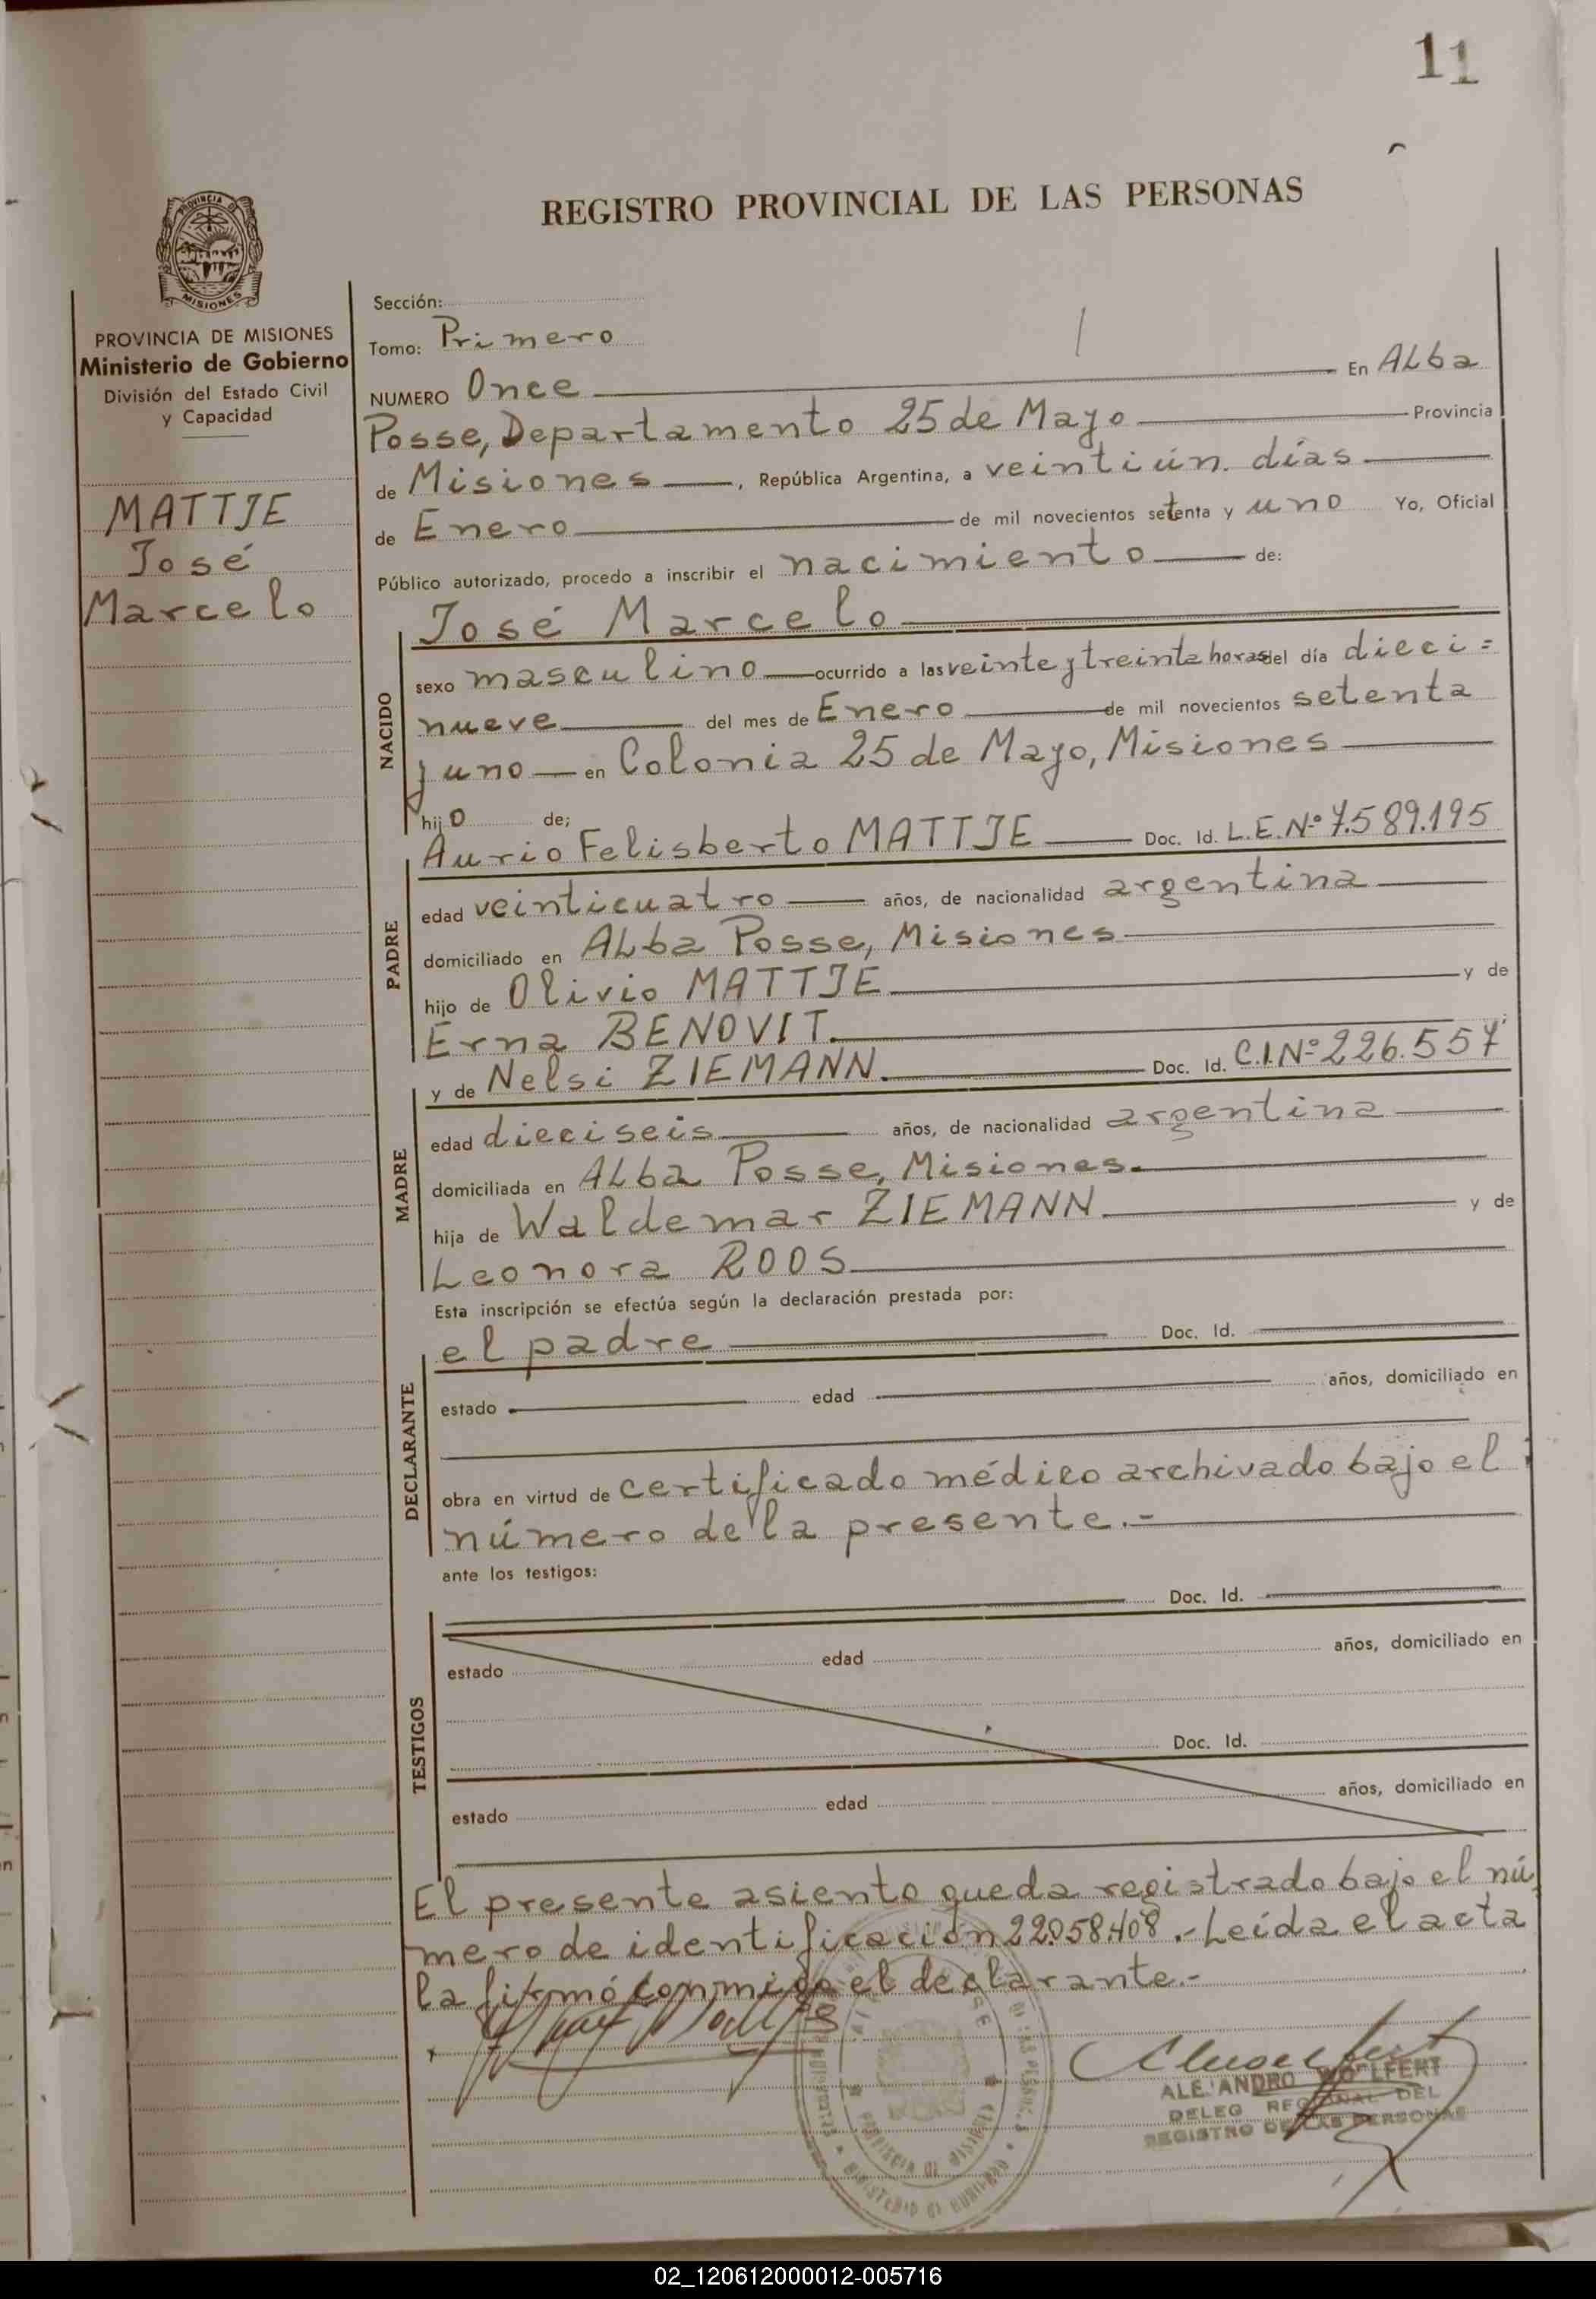 11
REGISTRO PROVINCIAL DE LAS PERSONAS
PROVINCIA DE
MISIONES
PROVINCIA DE MISIONES
Ministerio de Gobierno
División del Estado Civil
y Capacidad
MATTJE
José
Marcelo
Sección:
Tomo: Primero
NUMERO Once En ALba
Posse, Departamento 25 de Mayo Provincia
de Misiones, República Argentina, a veintiún días
de Enero de mil novecientos setenta y uno Yo, Oficial
Público autorizado, procedo a inscribir el nacimiento de:
NACIDO
José Marcelo
sexo masculino ocurrido a las veinte y treinta horas del día dieci=
nueve del mes de Enero de mil novecientos setenta
y uno en Colonia 25 de Mayo, Misiones
hijo de;
PADRE
Aurio Felisberto MATTJE Doc. Id. L.E.Nº 7.589.195
edad veinticuatro años, de nacionalidad argentina
domiciliado en ALba Posse, Misiones
hijo de Olivio MATTJE y de
Erna BENOVIT.
MADRE
y de Nelsi ZIEMANN. Doc. Id. C.I.Nº 226.557
edad dieciseis años, de nacionalidad argentina
domiciliada en ALba Posse, Misiones.
hija de Waldemar ZIEMANN y de
Leonora ROOS
Esta inscripción se efectúa según la declaración prestada por:
DECLARANTE
el padre Doc. Id.
estado edad años, domiciliado en
obra en virtud de certificado médico archivado bajo el
número de la presente.-
ante los testigos:
TESTIGOS
Doc. Id.
estado edad años, domiciliado en
Doc. Id.
estado edad años, domiciliado en
El presente asiento queda registrado bajo el nú
mero de identificación 22.058.408.- Leída el acta
la firmó conmigo el declarante.-
ALEJANDRO WOLFERT
DELEG REGIONAL DEL
REGISTRO DE LAS PERSONAS
PROVINCIA DE MISIONES
MINISTERIO DE GOBIERNO
02_120612000012-005716